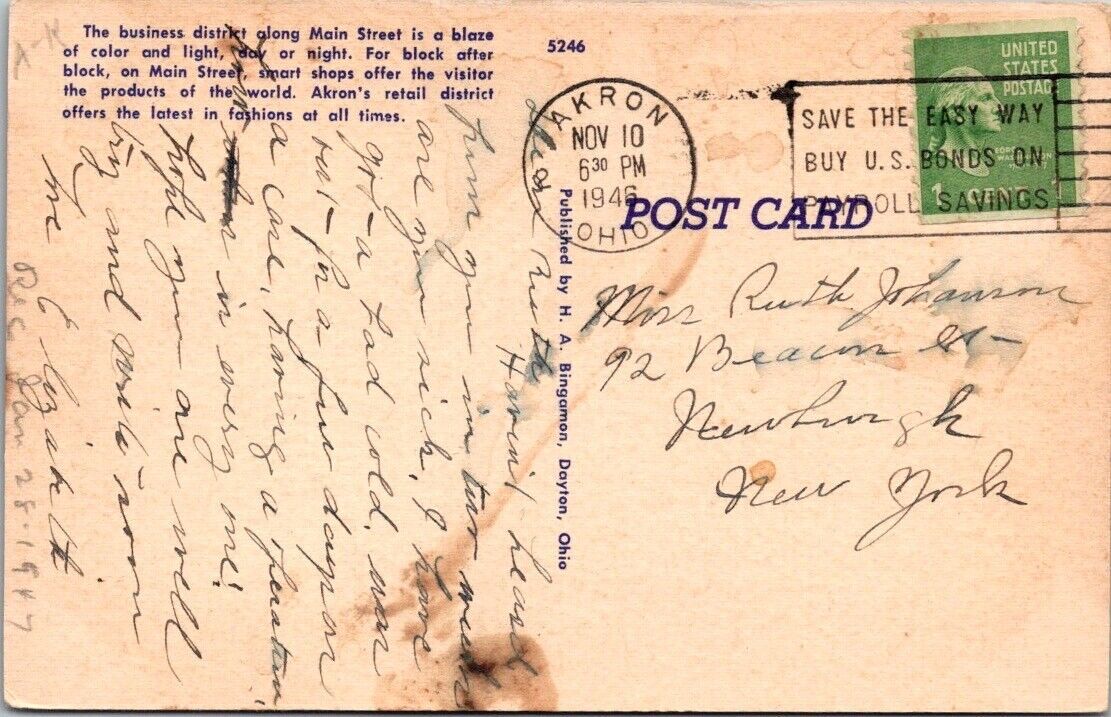 The business district along Main Street is a blaze
of color and light, day or night. For block after
block, on Main Street, smart shops offer the visitor
the products of the world. Akron's retail district
offers the latest in fashions at all times.
5246
AKRON
NOV 10
6 30 PM
1946
OHIO
SAVE THE EASY WAY
BUY U.S. BONDS ON
PAYROLL SAVINGS
UNITED
STATES
POSTAGE
1 CENT
POST CARD
Published by H. A. Bingamon, Dayton, Ohio
Miss Ruth Johanson
92 Beacon St
Newburgh
New York
Dear Ruth
Haven't heard
from you in two weeks
are you sick, I have
got a bad cold, was
out for a few days on
a case, having a
is every one!
hope you are well
try and write soon
to me
Elizabeth
Rec Jan 28-1947